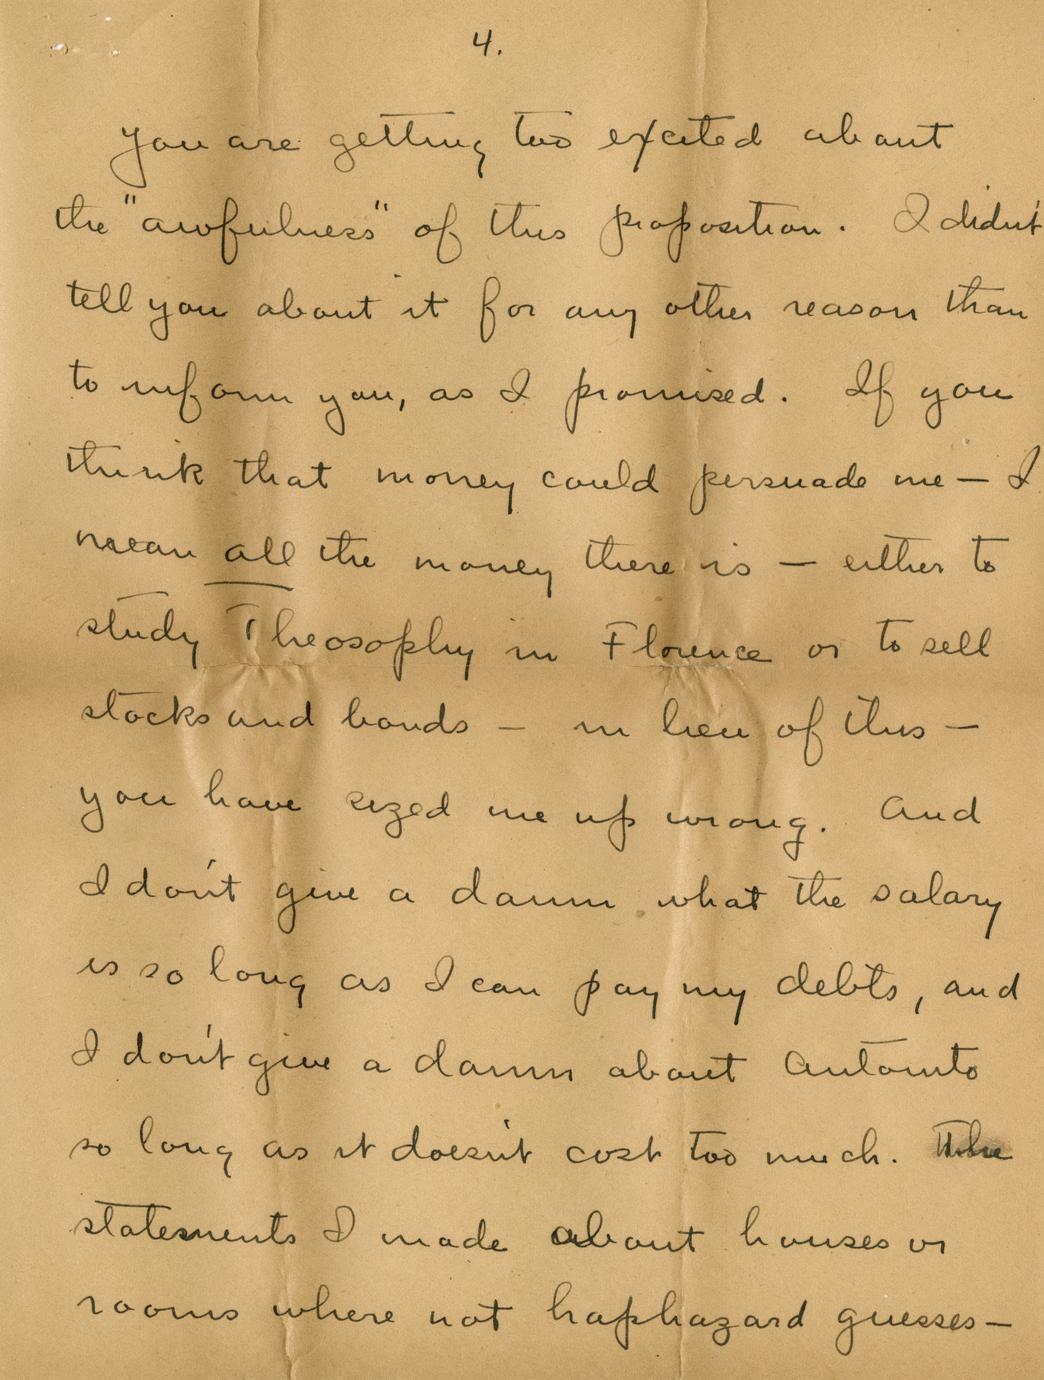 4.
You are getting too excited about
the "awfulness" of this proposition. I didn't
tell you about it for any other reason than
to inform you, as I promised. If you
think that money could persuade me — I
mean all the money there is — either to
study Theosophy in Florence or to sell
stocks and bonds — in lieu of this —
you have sized me up wrong. And
I don't give a damn what the salary
is so long as I can pay my debts, and
I don't give a damn about
so long as it doesn't cost too much. The
statements I made about houses or
rooms where not haphazard guesses —